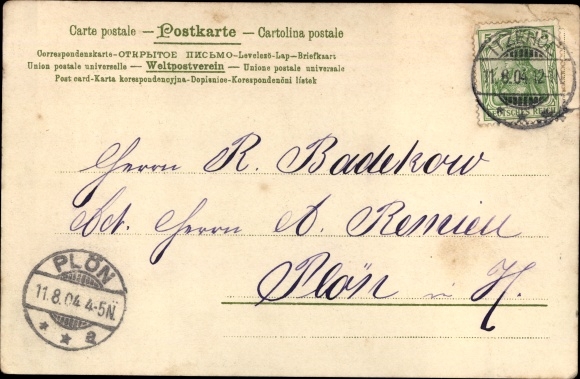 Carte postale – Postkarte – Cartolina postale
Correspondenskarte-ОТКРЫТОЕ ПИСЬМО-Levelező-Lap-Briefkaart
Union postale universelle – Weltpostverein – Unione postale universale
Post card-Karta korespondencyjna-Dopisnice-Korespondenční lístek
11.8.04.12
Herrn R. Badekow
Herrn A.
Plön i. H.
PLÖN
11.8.04 4-5N.
* * a